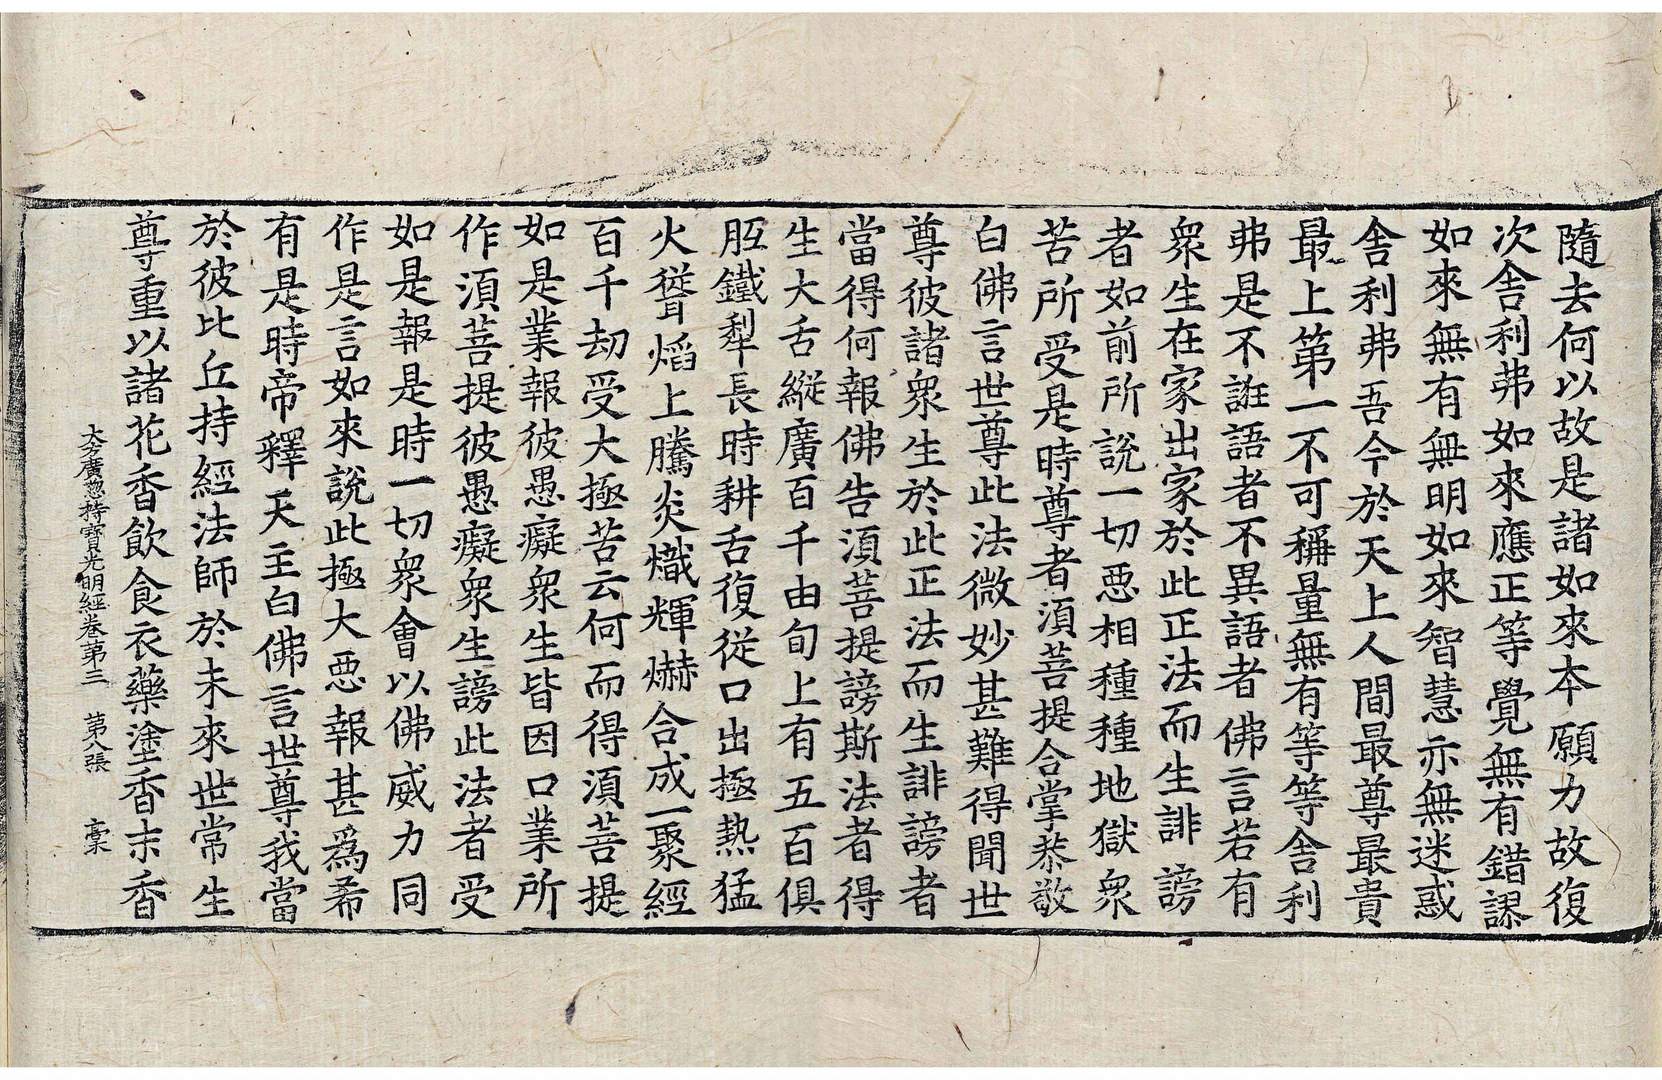 隨去何以故是諸如來本願力故復
次舎利弗如來應正等覺無有錯謬
如來無有無明如來智慧亦無迷惑
舎利弗吾今於天上人間最尊最貴
最上第一不可稱量無有等等舎利
弗是不誑語者不異語者佛言若有
衆生在家出家於此正法而生誹謗
者如前所說一切惡相種種地獄衆
苦所受是時尊者湏菩提合掌恭敬
白佛言世尊此法微妙甚難得聞世
尊彼諸衆生於此正法而生誹謗者
當得何報佛告湏菩提謗斯法者得
生大舌縱廣百千由旬上有五百俱
胝鐵犁長時耕舌復從口出極熱猛
火聳焰上騰炎熾輝爀合成一聚經
百千劫受大極苦云何而得湏菩提
如是業報彼愚癡衆生皆因口業所
作湏菩提彼愚癡衆生謗此法者受
如是報是時一切衆會以佛威力同
作是言如來說此極大惡報甚爲希
有是時帝釋天主白佛言世尊我當
於彼比丘持經法師於未來世常生
尊重以諸花香飲食衣藥塗香末香
大方廣惣持寶光明經卷第三　第八張　槀